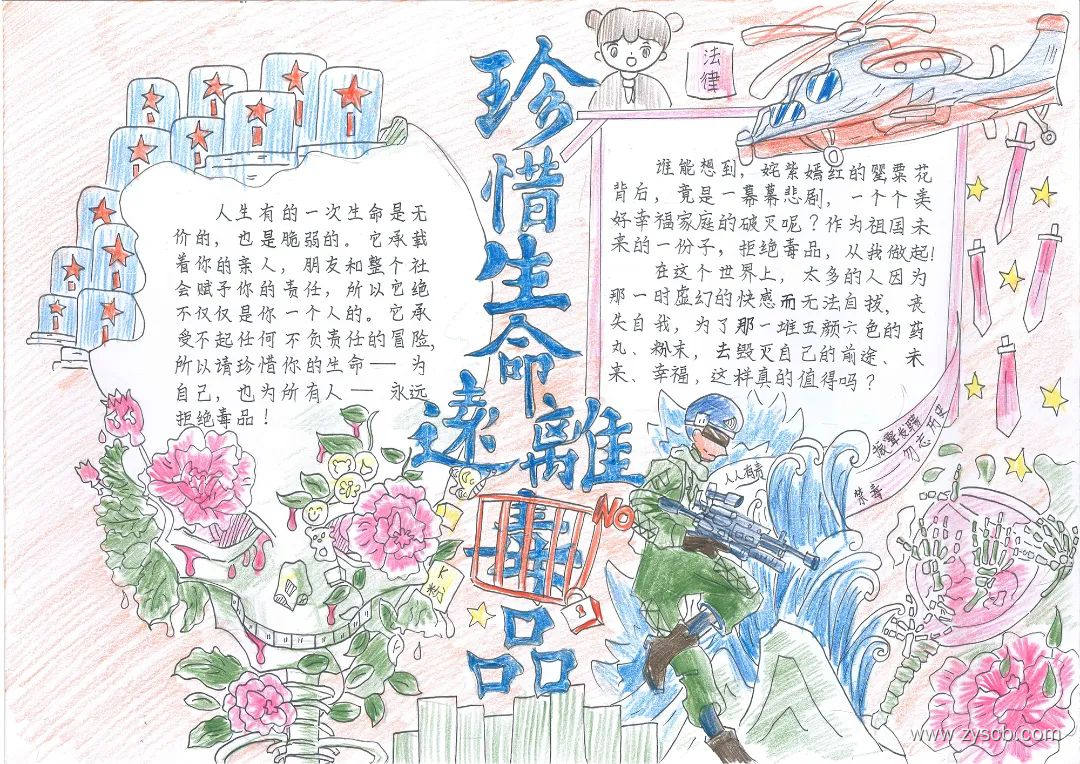 珍惜生命
遠離
毒品
法律
人生有的一次生命是无
价的，也是脆弱的。它承载
着你的亲人，朋友和整个社
会赋予你的责任，所以它绝
不仅仅是你一个人的。它承
受不起任何不负责任的冒险，
所以请珍惜你的生命——为
自己，也为所有人——永远
拒绝毒品！
谁能想到，姹紫嫣红的罂粟花
背后，竟是一幕幕悲剧，一个个美
好幸福家庭的破灭呢？作为祖国未
来的一份子，拒绝毒品，从我做起！
在这个世界上，太多的人因为
那一时虚幻的快感而无法自拔，丧
失自我，为了那一堆五颜六色的药
丸、粉末，去毁灭自己的前途、未
来、幸福，这样真的值得吗？
NO
K
粉
禁毒
人人有责
警钟长鸣
勿忘历史
www.zysob.com